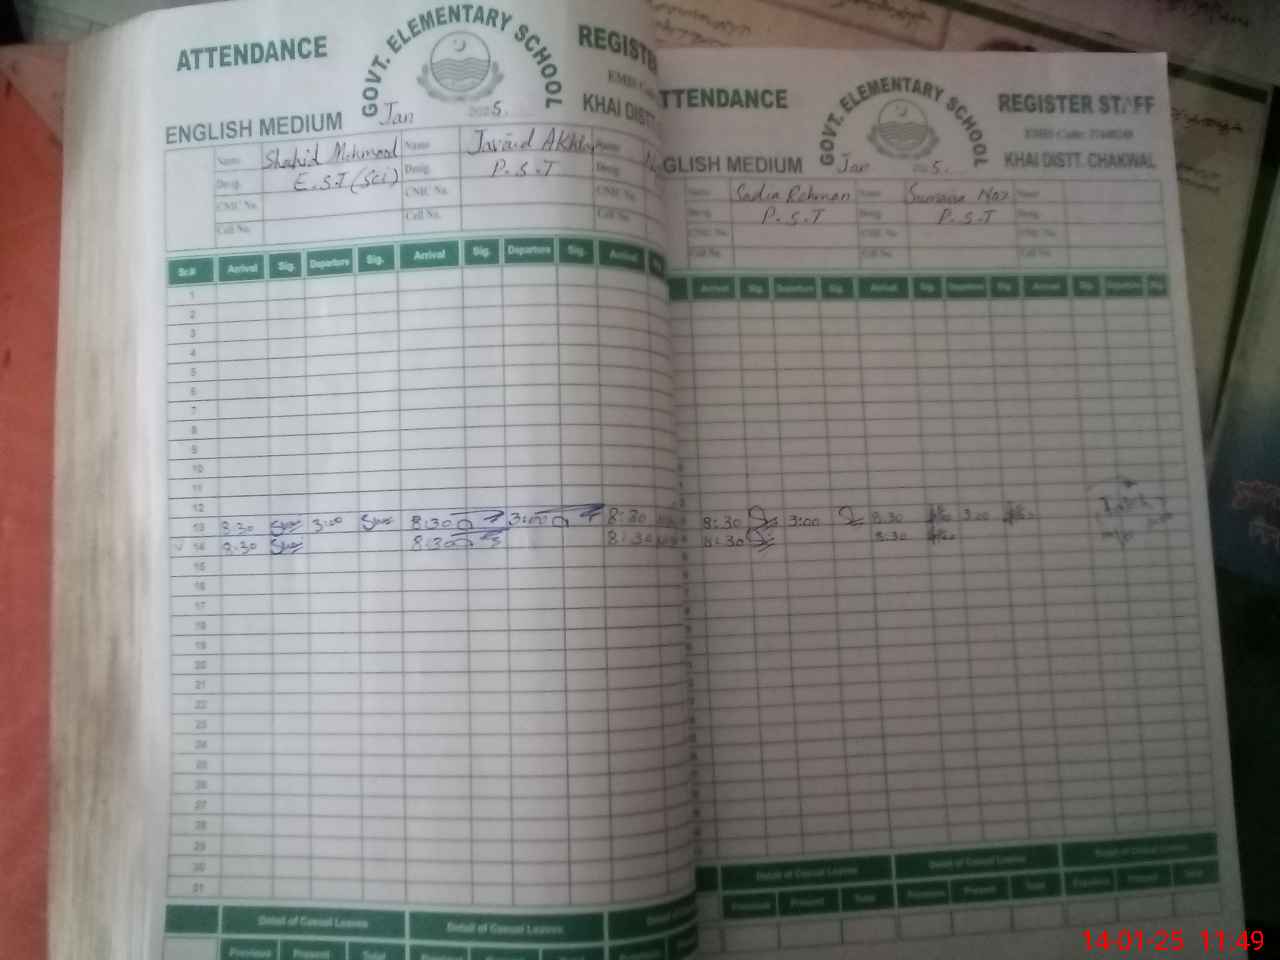 ATTENDANCE
GOVT. ELEMENTARY SCHOOL
REGISTER
ENGLISH MEDIUM
Jan 2025.
KHAI DISTT.
Name Shahid Mehmood Name Javaid Akhtar Name
Desig. E.S.T (Sci) Desig. P.S.T Desig.
CNIC No. CNIC No. CNIC No.
Cell No. Cell No. Cell No.
Sr.# Arrival Sig. Departure Sig. Arrival Sig. Departure Sig. Arrival
1
2
3
4
5
6
7
8
9
10
11
12
13 8:30 3:00 8:30 3:00 8:30
14 8:30 8:30 8:30
15
16
17
18
19
20
21
22
23
24
25
26
27
28
29
30
31
Detail of Casual Leaves Detail of Casual Leaves
Previous Present Total Previous Present Total
TTENDANCE
GOVT. ELEMENTARY SCHOOL
REGISTER STAFF
GLISH MEDIUM
Jan 2025.
KHAI DISTT. CHAKWAL
Name Sadia Rehman Name Sumaira Naz Name
Desig. P.S.T Desig. P.S.T Desig.
CNIC No. CNIC No. CNIC No.
Cell No. Cell No. Cell No.
Arrival Sig. Departure Sig. Arrival Sig. Departure Sig. Arrival Sig. Departure Sig.
8:30 3:00 8:30 3:00
8:30 8:30
Detail of Casual Leaves Detail of Casual Leaves Detail of Casual Leaves
Previous Present Total Previous Present Total Previous Present Total
14-01-25 11:49